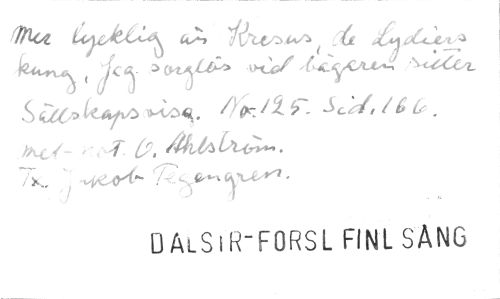 Mer lycklig än Kresus, de Lydiers
kung, Jag sorglös vid bägaren sitter
Sällskapsvisa. No.125. Sid.166.
met-not. O. Ahlström.
Tx. Jakob Tegengren.
DALSIR-FORSL FINL SÅNG